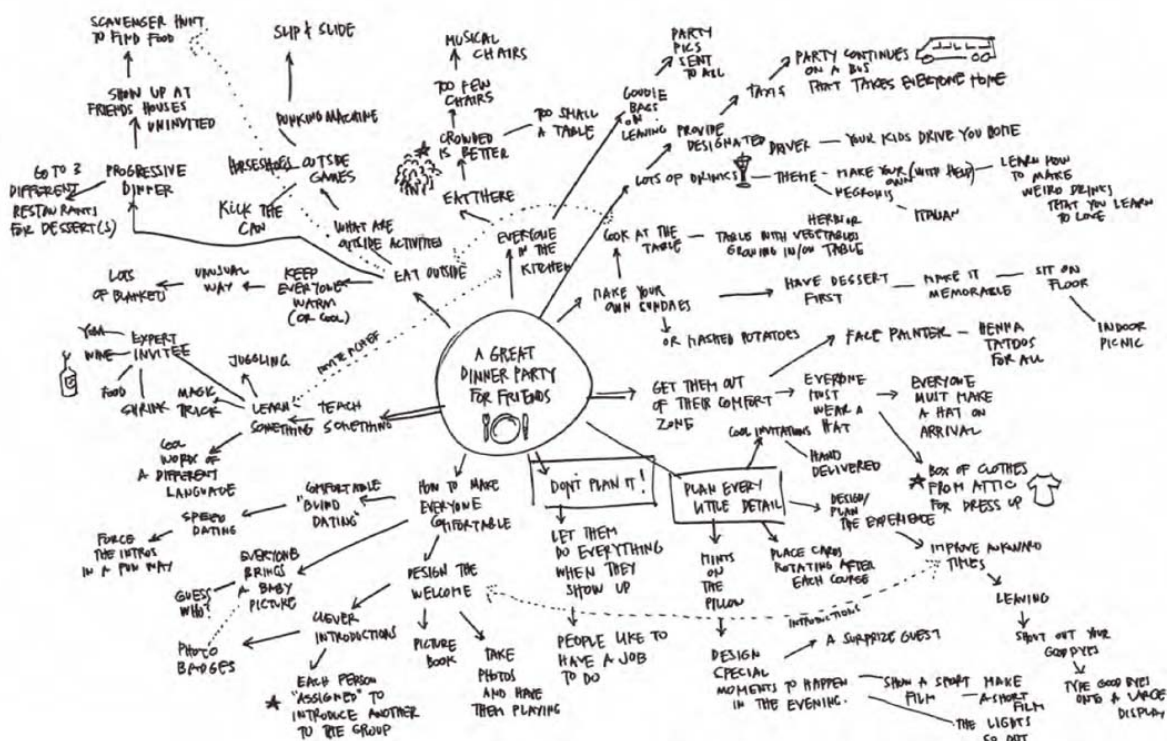 A GREAT
DINNER PARTY
FOR FRIENDS
SCAVENGER HUNT
TO FIND FOOD
SHOW UP AT
FRIENDS HOUSES
UNINVITED
PROGRESSIVE
DINNER
GO TO 3
DIFFERENT
RESTAURANTS
FOR DESSERT(S)
SLIP & SLIDE
DUNKING MACHINE
HORSESHOES
OUTSIDE
GAMES
KICK THE
CAN
WHAT ARE
OUTSIDE ACTIVITIES
EAT OUTSIDE
KEEP
EVERYONE
WARM
(OR COOL)
UNUSUAL
WAY
LOTS
OF BLANKETS
MUSICAL
CHAIRS
TOO FEW
CHAIRS
CROWDED
IS BETTER
TOO SMALL
A TABLE
EAT THERE
EVERYONE
IN THE
KITCHEN
PARTY
PICS
SENT
TO ALL
GOODIE
BAGS
ON
LEAVING
PROVIDE
DESIGNATED
DRIVER
YOUR KIDS DRIVE YOU HOME
TAXIS
PARTY CONTINUES
ON A BUS
THAT TAKES EVERYONE HOME
LOTS OF DRINKS
THEME
MAKE YOUR
OWN (WITH HELP)
NEGRONIS
ITALIAN
LEARN HOW
TO MAKE
WEIRD DRINKS
THAT YOU LEARN
TO LOVE
COOK AT THE
TABLE
HERB OR
TABLE WITH VEGETABLES
GROWING IN/ON TABLE
MAKE YOUR
OWN SUNDAES
OR MASHED POTATOES
HAVE DESSERT
FIRST
MAKE IT
MEMORABLE
SIT ON
FLOOR
INDOOR
PICNIC
GET THEM OUT
OF THEIR COMFORT
ZONE
FACE PAINTER
HENNA
TATTOOS
FOR ALL
EVERYONE
MUST
WEAR A
HAT
EVERYONE
MUST MAKE
A HAT ON
ARRIVAL
BOX OF CLOTHES
FROM ATTIC
FOR DRESS UP
PLAN EVERY
LITTLE DETAIL
COOL INVITATIONS
HAND
DELIVERED
DESIGN/
PLAN
THE EXPERIENCE
IMPROVE AWKWARD
TIMES
LEAVING
SHOUT OUT YOUR
GOODBYES
TYPE GOODBYES
ONTO A LARGE
DISPLAY
PLACE CARDS
ROTATING AFTER
EACH COURSE
INTRODUCTIONS
MINTS
ON
THE
PILLOW
DESIGN
SPECIAL
MOMENTS TO HAPPEN
IN THE EVENING.
A SURPRIZE GUEST
SHOW A SHORT
FILM
MAKE
A SHORT
FILM
THE LIGHTS
GO OUT
DON'T PLAN IT!
LET THEM
DO EVERYTHING
WHEN THEY
SHOW UP
PEOPLE LIKE TO
HAVE A JOB
TO DO
HOW TO MAKE
EVERYONE
COMFORTABLE
COMFORTABLE
"BLIND
DATING"
SPEED
DATING
FORCE
THE INTROS
IN A FUN WAY
EVERYONE
BRINGS
A BABY
PICTURE
GUESS
WHO?
PHOTO
BADGES
DESIGN THE
WELCOME
CLEVER
INTRODUCTIONS
EACH PERSON
"ASSIGNED" TO
INTRODUCE ANOTHER
TO THE GROUP
PICTURE
BOOK
TAKE
PHOTOS
AND HAVE
THEM PLAYING
TEACH
SOMETHING
LEARN
SOMETHING
INVITE A CHEF
JUGGLING
MAGIC
TRICK
EXPERT
INVITEE
YOGA
WINE
FOOD
SHRINK
COOL
WORDS OF
A DIFFERENT
LANGUAGE